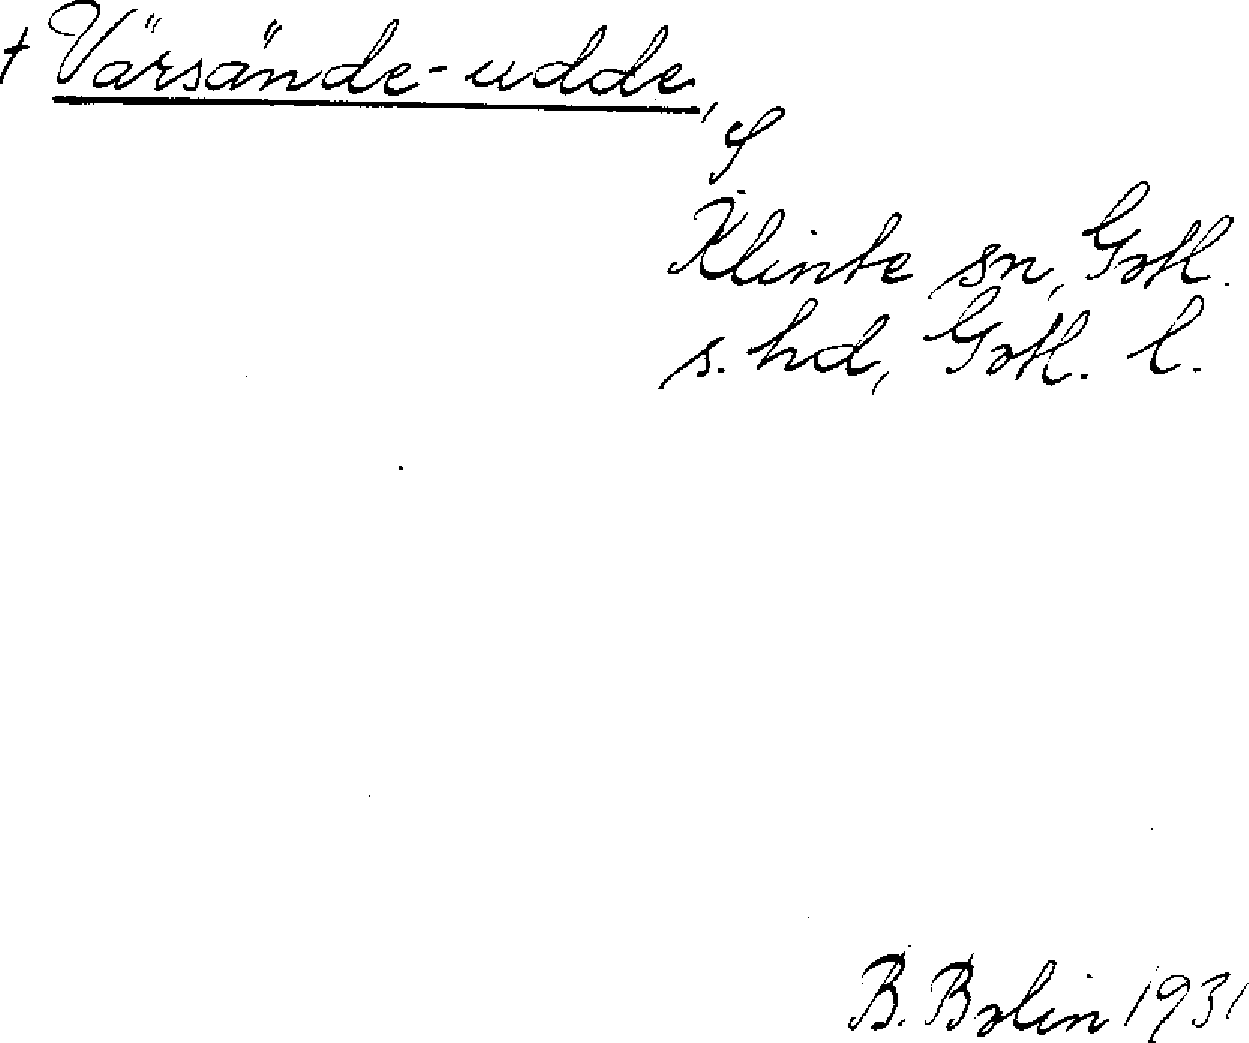 † Värsände-udde,
Klinte sn, Gotl.
s. hd, Gotl. l.
B. Bolin 1931